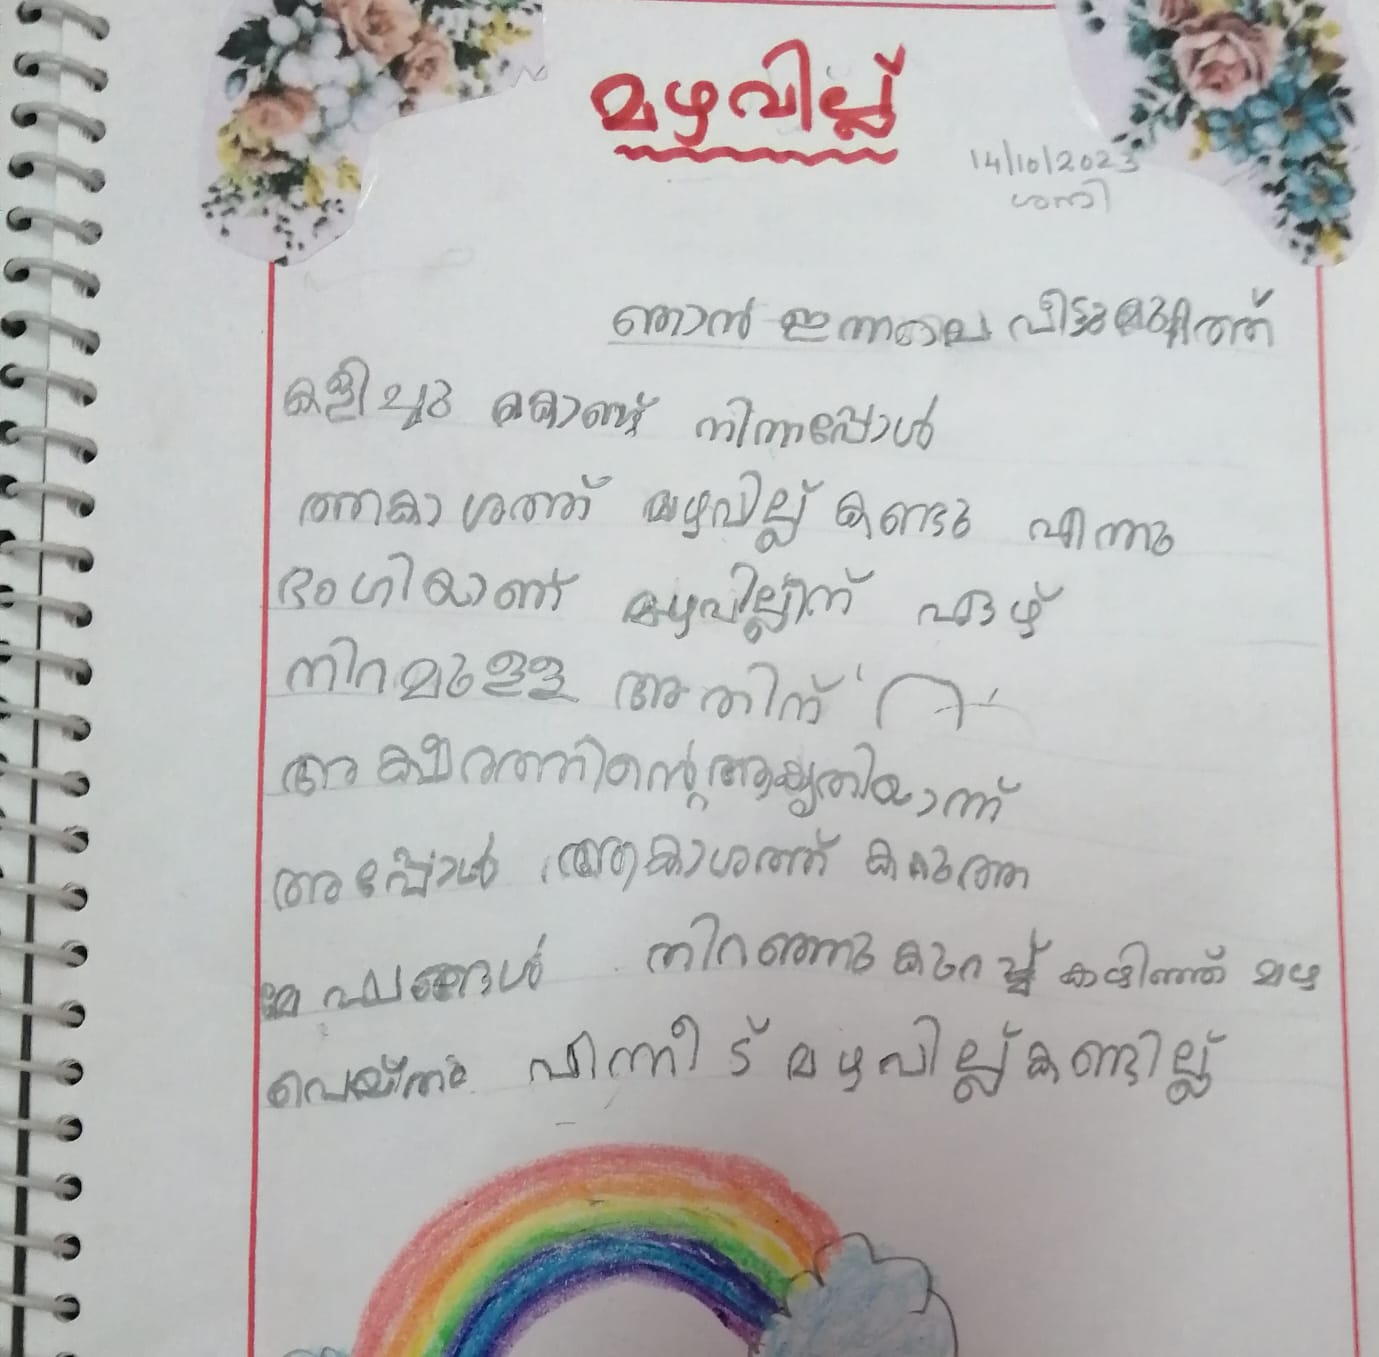 മഴവില്ല്
14/10/2023
ശനി
ഞാൻ ഇന്നലെ വീട്ടുമുറ്റത്ത്
കളിച്ചു കൊണ്ട് നിന്നപ്പോൾ
ആകാശത്ത് മഴവില്ല് കണ്ടു എന്നു
ഭംഗിയാണ് മഴവില്ലിന് ഏഴ്
നിറമുള്ള അതിന് ' റ '
അക്ഷരത്തിന്റെ ആകൃതിയാന്ന്
അപ്പോൾ ആകാശത്ത് കറുത്ത
മേഘങ്ങൾ നിറഞ്ഞു കുറച്ച് കഴിഞ്ഞ് മഴ
പിന്നീട് മഴവില്ല് കണ്ടില്ല്